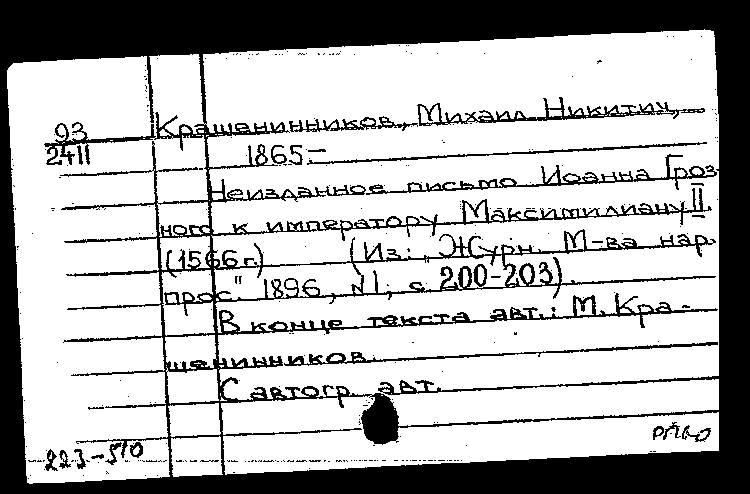 93
2411
Крашенинников, Михаил Никитич,
1865.-
Неизданное письмо Иоанна Гроз-
ного к императору Максимилиану II.
(1566 г.) (Из: "Журн. М-ва нар.
прос." 1896, N1, с 200-203).
В конце текста авт.: М. Кра-
шенинников.
С автогр. авт.
223-510